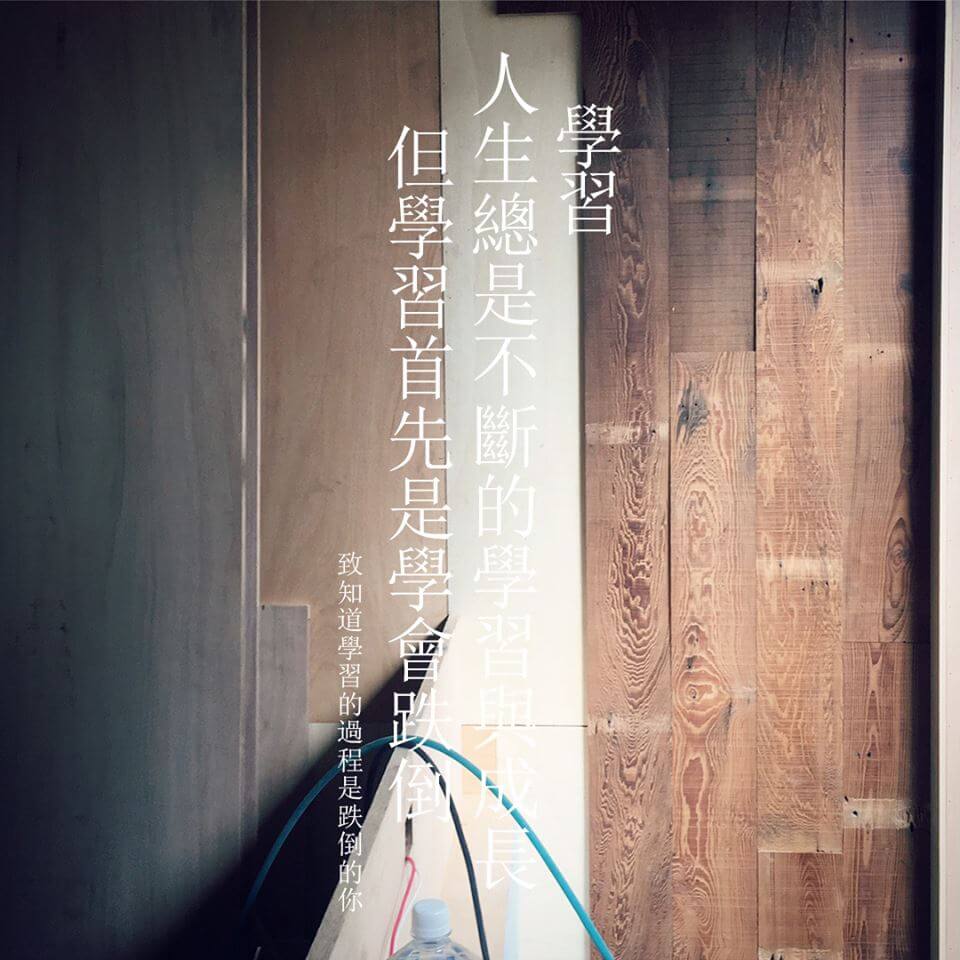 學習
人生總是不斷的學習與成長
但學習首先是學會跌倒
致知道學習的過程是跌倒的你